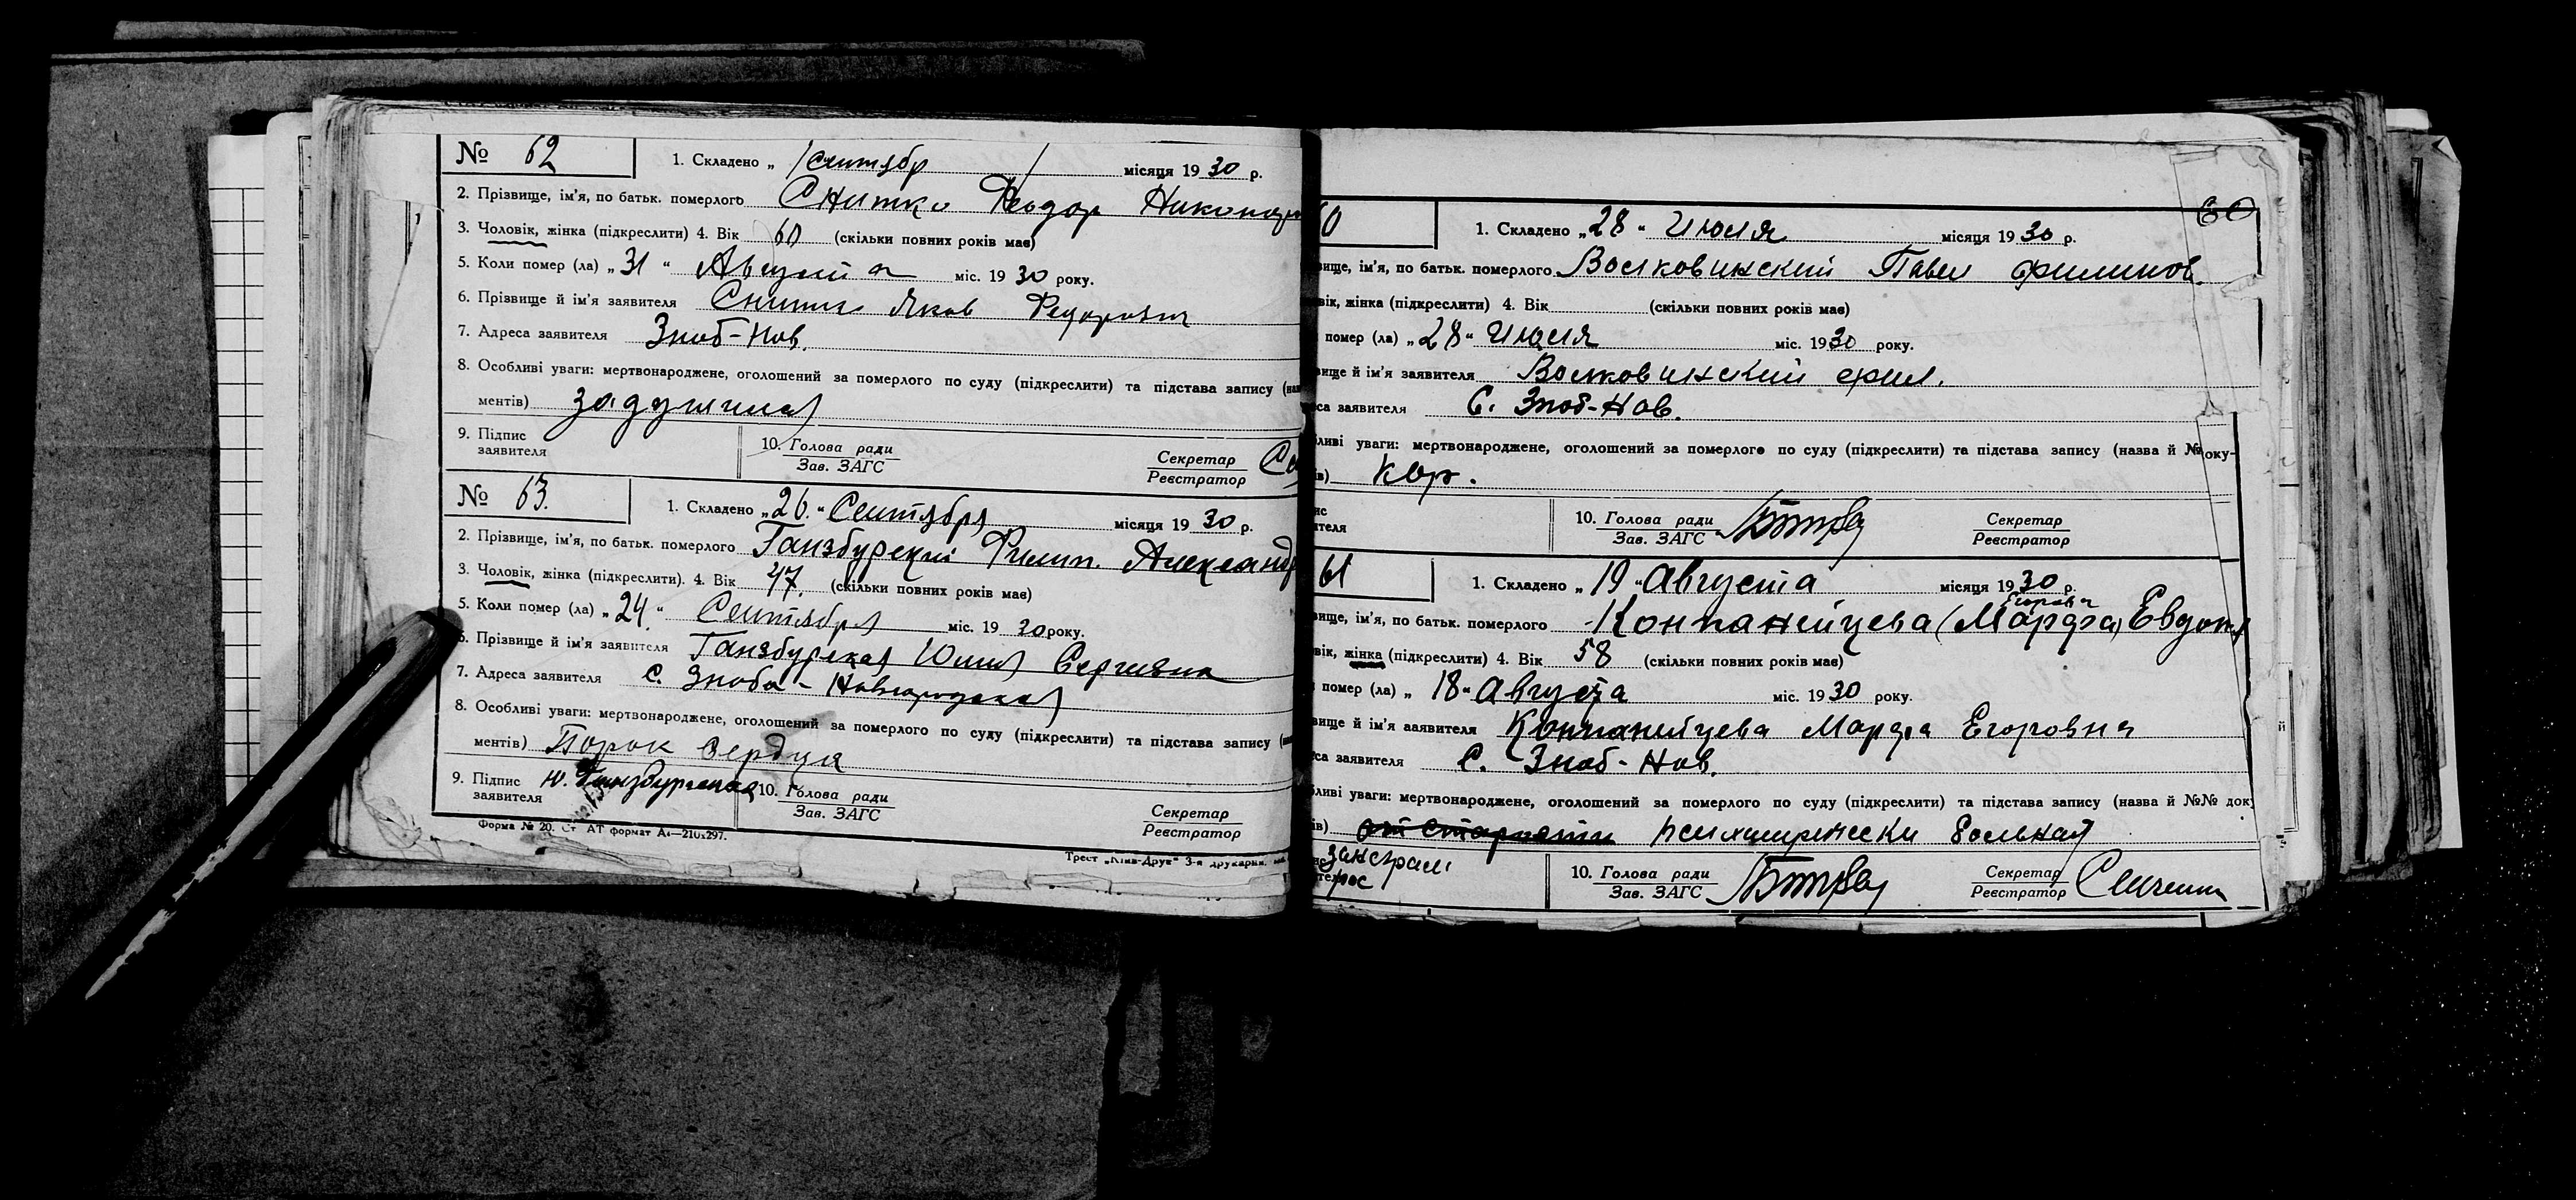 № 62 1. Складено „ 1 Сентябр місяця 1930 р.
2. Прізвище, ім'я, по батьк. померлого Снитко Феодор
3. Чоловік, жінка (підкреслити) 4. Вік 60 (скільки повних років має)
5. Коли помер (ла) „31“ Августа міс. 1930 року.
6. Прізвище й ім'я заявителя Снитко Яков Федорович
7. Адреса заявителя Зноб-Нов.
8. Особливі уваги: мертвонароджене, оголошений за померлого по суду (підкреслити) та підстава запису
ментів)
9. Підпис заявителя 10. Голова ради Зав. ЗАГС Секретар Реєстратор
№ 63. 1. Складено „26.“ Сентября місяця 1930 р.
2. Прізвище, ім'я, по батьк. померлого Ганзбурский Филип. Александ
3. Чоловік, жінка (підкреслити). 4. Вік 47. (скільки повних років має)
5. Коли помер (ла) „24.“ Сентября міс. 1930 року.
6. Прізвище й ім'я заявителя Ганзбурская Юлия Сергиевна
7. Адреса заявителя с. Зноба-Новгородская
8. Особливі уваги: мертвонароджене, оголошений за померлого по суду (підкреслити) та підстава запису
ментів) Порок сердца
9. Підпис заявителя Ю. Ганзбургская 10. Голова ради Зав. ЗАГС Секретар Реєстратор
Форма № 20. Ст. АТ формат А4—210х297.
Трест „Київ-Друк“ 3-я друкарня.
60
0 1. Складено „28“ Июля місяця 1930 р.
вище, ім'я, по батьк. померлого Волковинский Павел Филипов.
вік, жінка (підкреслити) 4. Вік (скільки повних років має)
помер (ла) „28“ Июля міс. 1930 року.
вище й ім'я заявителя Волковинский Фил.
са заявителя С. Зноб-Нов.
бливі уваги: мертвонароджене, оголошений за померлого по суду (підкреслити) та підстава запису (назва й № оку-
ів) Кор.
10. Голова ради Зав. ЗАГС Секретар Реєстратор
61 1. Складено „19“ Августа місяця 1930 р.
вище, ім'я, по батьк. померлого Конпанейцева (Марфа) Евдок
вік, жінка (підкреслити) 4. Вік 58 (скільки повних років має)
помер (ла) „18“ Августа міс. 1930 року.
вище й ім'я заявителя Конпанейцева Марфа Егоровна
са заявителя С. Зноб-Нов.
бливі уваги: мертвонароджене, оголошений за померлого по суду (підкреслити) та підстава запису (назва й №№ док
ів) от старости психически больная
10. Голова ради Зав. ЗАГС Секретар Реєстратор